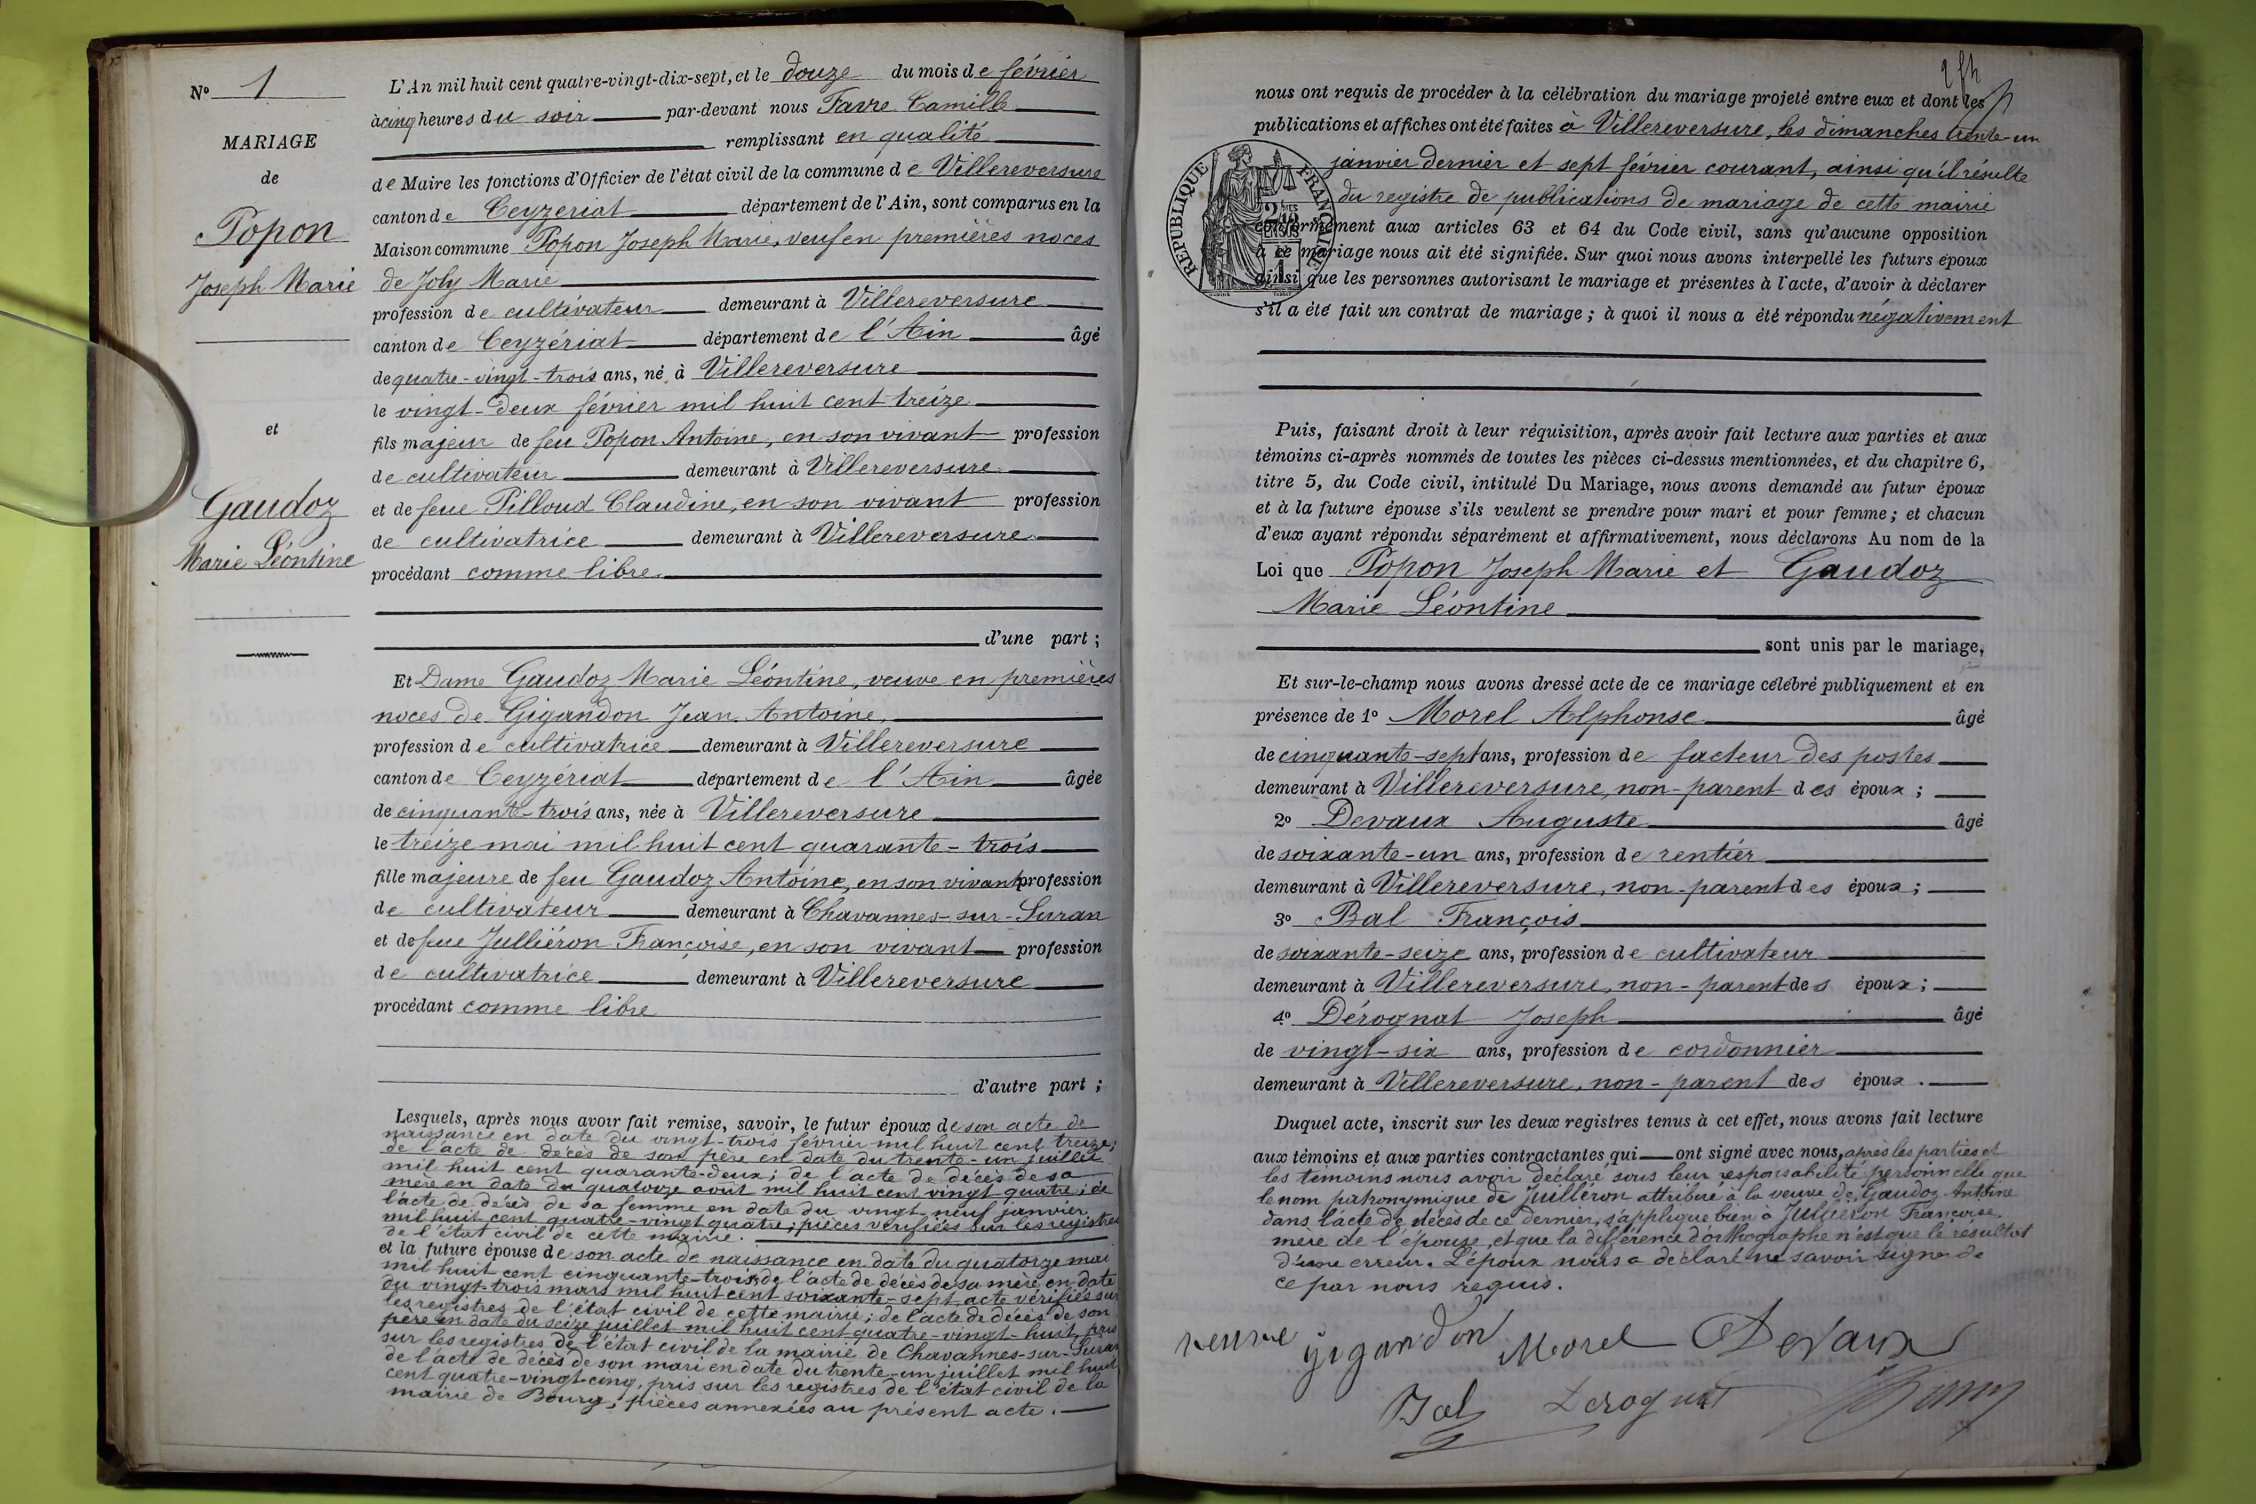 N° 1
MARIAGE
de
Popon
Joseph Marie
et
Gaudoz
Marie Léontine
L'An mil huit cent quatre-vingt-dix-sept, et le douze du mois de février
à cinq heures du soir par-devant nous Favre Camille
remplissant en qualité
de Maire les fonctions d'Officier de l'état civil de la commune de Villereversure
canton de Ceyzeriat département de l'Ain, sont comparus en la
Maison commune Popon Joseph Marie, veuf en premières noces
de Joly Marie
profession de cultivateur demeurant à Villereversure
canton de Ceyzériat département de l'Ain âgé
de quatre-vingt-trois ans, né à Villereversure
le vingt-deux février mil huit cent treize
fils majeur de feu Popon Antoine, en son vivant profession
de cultivateur demeurant à Villereversure
et de feue Pilloud Claudine, en son vivant profession
de cultivatrice demeurant à Villereversure
procédant comme libre
d'une part ;
Et Dame Gaudoz Marie Léontine, veuve en premières
noces de Gigandon Jean Antoine,
profession de cultivatrice demeurant à Villereversure
canton de Ceyzériat département de l'Ain âgée
de cinquante-trois ans, née à Villereversure
le treize mai mil huit cent quarante-trois
fille majeure de feu Gaudoz Antoine, en son vivant profession
de cultivateur demeurant à Chavannes-sur-Suran
et de feue Julliéron Françoise, en son vivant profession
de cultivatrice demeurant à Villereversure
procédant comme libre
d'autre part ;
Lesquels, après nous avoir fait remise, savoir, le futur époux de son acte de
naissance en date du vingt-trois février mil huit cent treize;
de l'acte de décès de son père en date du trente-un juillet
mil huit cent quarante-deux; de l'acte de décès de sa
mère en date du quatorze août mil huit cent vingt-quatre; de
l'acte de décès de sa femme en date du vingt neuf janvier
mil huit cent quatre-vingt quatre; pièces vérifiées sur les registres
de l'état civil de cette mairie.
et la future épouse de son acte de naissance en date du quatorze mai
mil huit cent cinquante-trois, de l'acte de décès de sa mère en date
du vingt-trois mars mil huit cent soixante-sept, acte vérifiés sur
les registres de l'état civil de cette mairie; de l'acte de décès de son
père en date du seize juillet mil huit cent quatre-vingt-huit, pris
sur les registres de l'état civil de la mairie de Chavannes-sur-Suran
de l'acte de décès de son mari en date du trente-un juillet mil huit
cent quatre-vingt-cinq, pris sur les registres de l'état civil de la
mairie de Bourg; pièces annexées au présent acte.
nous ont requis de procéder à la célébration du mariage projeté entre eux et dont les
publications et affiches ont été faites à Villereversure, les dimanches trente-un
janvier dernier et sept février courant, ainsi qu'il résulte
du registre de publications de mariage de cette mairie
RÉPUBLIQUE FRANÇAISE
conformément aux articles 63 et 64 du Code civil, sans qu'aucune opposition
à ce mariage nous ait été signifiée. Sur quoi nous avons interpellé les futurs époux
ainsi que les personnes autorisant le mariage et présentes à l'acte, d'avoir à déclarer
s'il a été fait un contrat de mariage ; à quoi il nous a été répondu négativement
Puis, faisant droit à leur réquisition, après avoir fait lecture aux parties et aux
témoins ci-après nommés de toutes les pièces ci-dessus mentionnées, et du chapitre 6,
titre 5, du Code civil, intitulé Du Mariage, nous avons demandé au futur époux
et à la future épouse s'ils veulent se prendre pour mari et pour femme ; et chacun
d'eux ayant répondu séparément et affirmativement, nous déclarons Au nom de la
Loi que Popon Joseph Marie et Gaudoz
Marie Léontine
sont unis par le mariage,
Et sur-le-champ nous avons dressé acte de ce mariage célébré publiquement et en
présence de 1° Morel Alphonse âgé
de cinquante-sept ans, profession de facteur des postes
demeurant à Villereversure, non-parent des époux ;
2° Devaux Auguste âgé
de soixante-un ans, profession de rentier
demeurant à Villereversure, non-parent des époux ;
3° Bal François
de soixante-seize ans, profession de cultivateur
demeurant à Villereversure, non-parent des époux ;
4° Dérognat Joseph âgé
de vingt-six ans, profession de cordonnier
demeurant à Villereversure, non-parent des époux.
Duquel acte, inscrit sur les deux registres tenus à cet effet, nous avons fait lecture
aux témoins et aux parties contractantes qui ont signé avec nous, après les parties et
les témoins nous avoir déclaré sous leur responsabilité personnelle que
le nom patronymique de Juilléron attribué à la veuve de Gaudoz Antoine
dans l'acte de décès de ce dernier, s'applique bien à Julliéron Françoise,
mère de l'épouse, et que la différence d'orthographe n'est que le résultat
d'une erreur. L'époux nous a déclaré ne savoir signer de
ce par nous requis.
veuve gigandon Morel Devaux
Bal Derognat